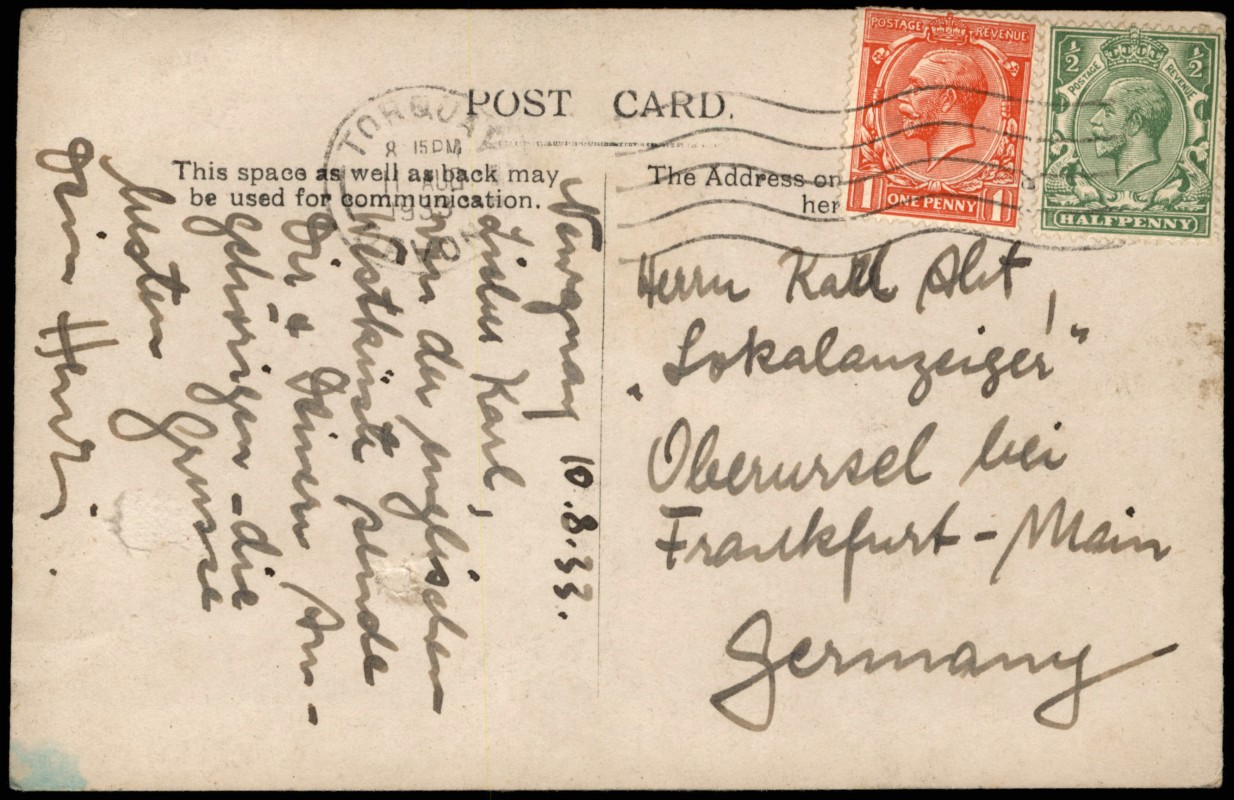 POST CARD.
This space as well as back may
be used for communication.
The Address on
her
POSTAGE REVENUE
1 ONE PENNY 1
½ ½
POSTAGE REVENUE
HALFPENNY
TORQUAY
8 15PM
11 AUG
1933
DEVON
Newquay 10.8.33.
Lieber Karl,
Von der englischen
Westküste sende
Dir & Deinen An-
gehörigen die
besten Grüsse
Dein
Herrn Karl Abt,
"Lokalanzeiger"
Oberursel bei
Frankfurt-Main
Germany